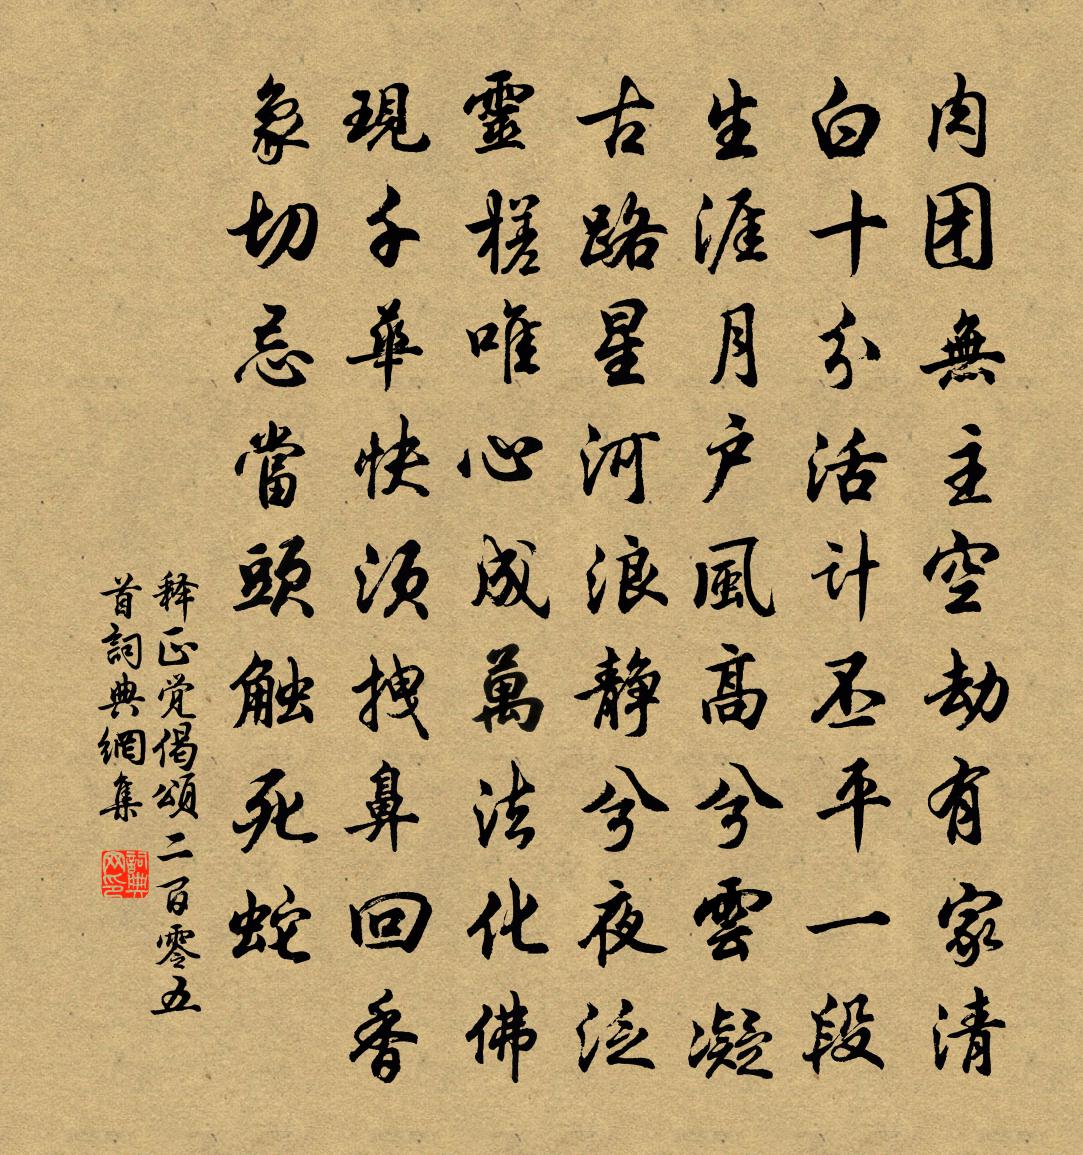 肉团無主空劫有家清
白十分活计丕平一段
生涯月户風高兮雲凝
古路星河浪静兮夜泛
靈槎唯心成萬法化佛
現千華快须拽鼻回香
象切忌當頭触死蛇
释正觉偈頌二百零五
首詞典網集
詞典
网印